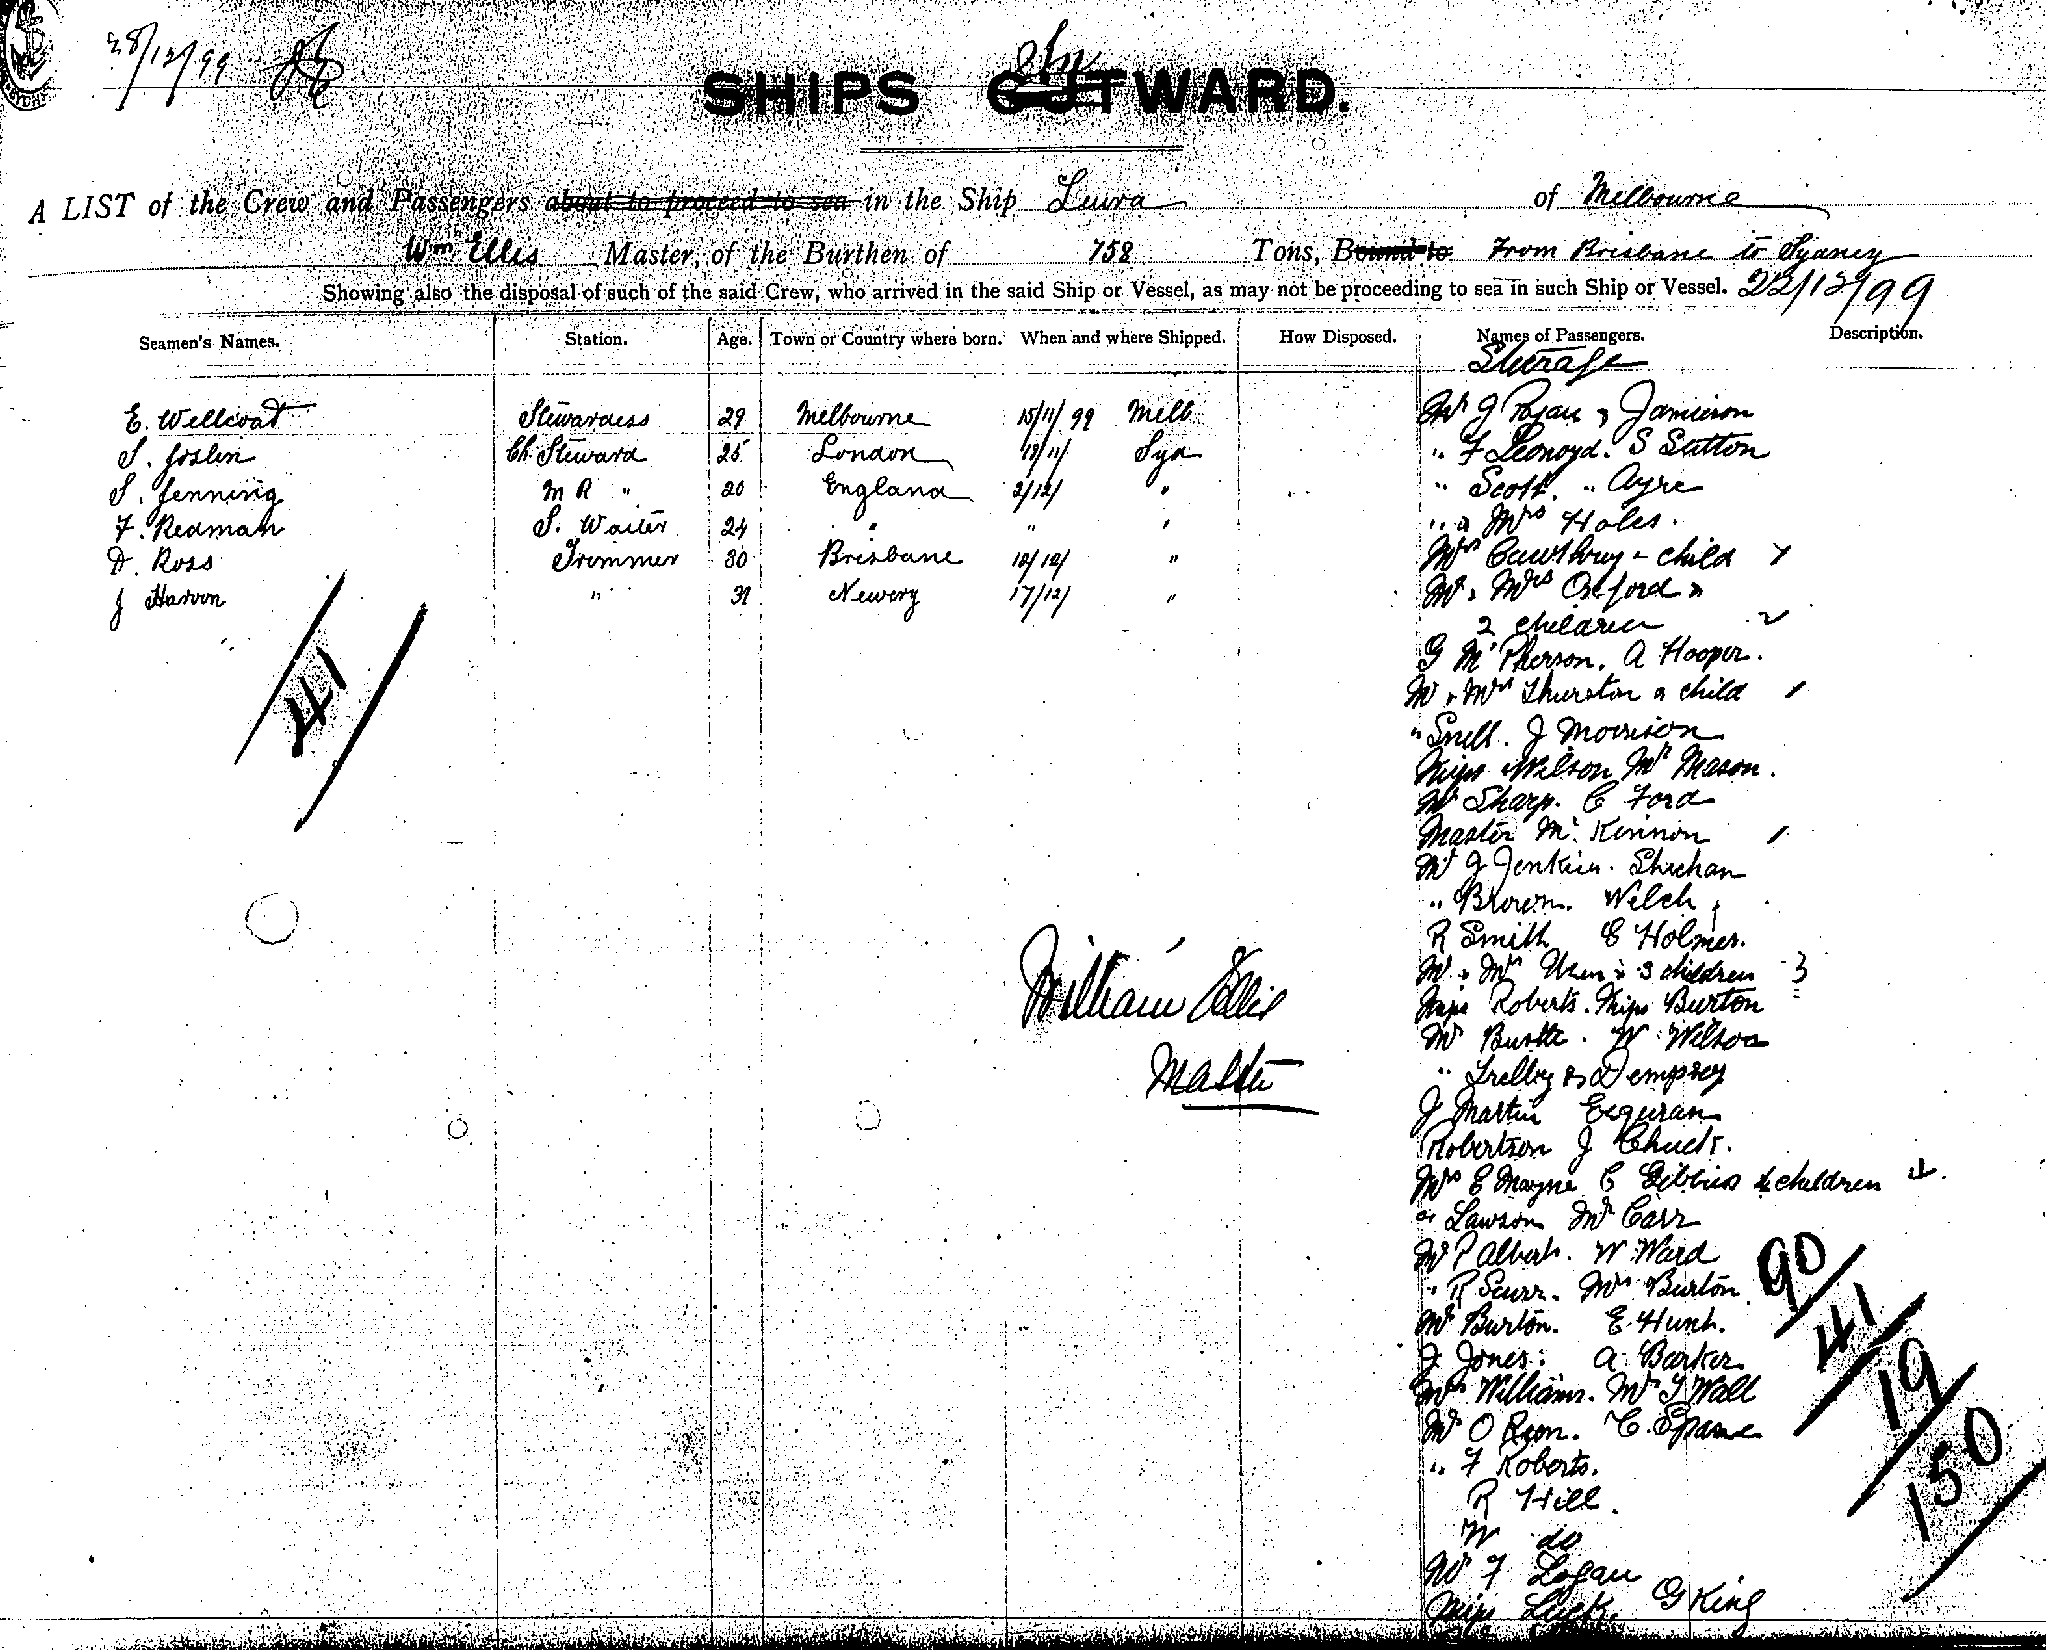 28/12/99
SHIPS OUTWARD.
In
A LIST of the Crew and Passengers about to proceed to sea in the Ship Leura of Melbourne
Wm Ellis Master, of the Burthen of 758 Tons, Bound to From Brisbane to Sydney
Showing also the disposal of such of the said Crew, who arrived in the said Ship or Vessel, as may not be proceeding to sea in such Ship or Vessel. 22/12/99
Seamen's Names. Station. Age. Town or Country where born. When and where Shipped. How Disposed. Names of Passengers. Description.
Steerage
E. Wellcoat Stewardess 29 Melbourne 15/11/99 Melb
S. Joslin Ch. Steward 25 London 18/11/ Syd
S. Jenning M R " 20 England 2/12/ "
F. Redman S. Waiter 24 " " "
D. Ross Trimmer 30 Brisbane 12/12/ "
J " Newery 17/12/ "
41
Mr J Ryan & Jamieson
" F S Sutton
" Scott. " Ayre
" & Mrs Holes.
Mrs & child
Mr & Mrs Oxford &
2 children 2
G McPherson. A Hooper.
Mr & Mrs Thurston & child 1
" Snell. J Morrison
Miss Wilson Mr Mason.
Mr Sharp. C Ford
Master McKinnon 1
Mr J Jenkins. Sheehan
" Brown. Welch
R Smith E Holmes.
Mr & Mrs & 3 children 3
Miss Roberts. Miss Burton
Mr W Wilson
" & Dempsey
J Martin
Robertson J Chuck.
Mrs E Mayne C Gibbins 4 children 4.
" Lawson Mr Carr
Mr P Albert. W Ward
" R Scurr. Mrs Burton
Mr Burton. E Hunt.
J Jones. A Barker
Mrs Williams. Mr T Wall
Mr O Ryan. C.
" F Roberts.
R Hill.
W do
Mr F Logan
Miss Luck. G King
William Ellis
Master
90
41
19
150